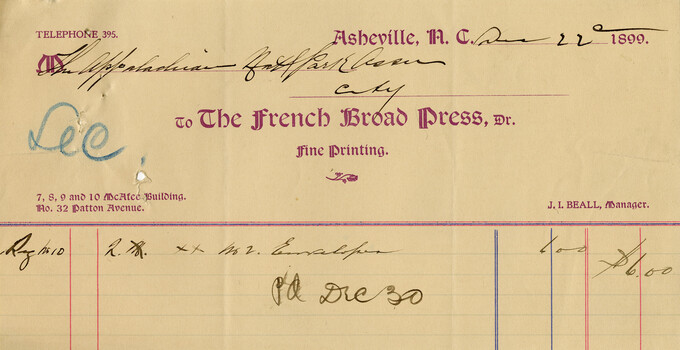 TELEPHONE 395.
Asheville, N. C. Dec 22d 1899.
The Appalachian Natl Park Assn
City
To The French Broad Press, Dr.
Sec.
Fine Printing.
7, 8, 9 and 10 McAfee Building.
No. 32 Patton Avenue.
J. I. BEALL, Manager.
2 M. xx No 2. Envelopes 6.00 $6.00
Pd Dec 30